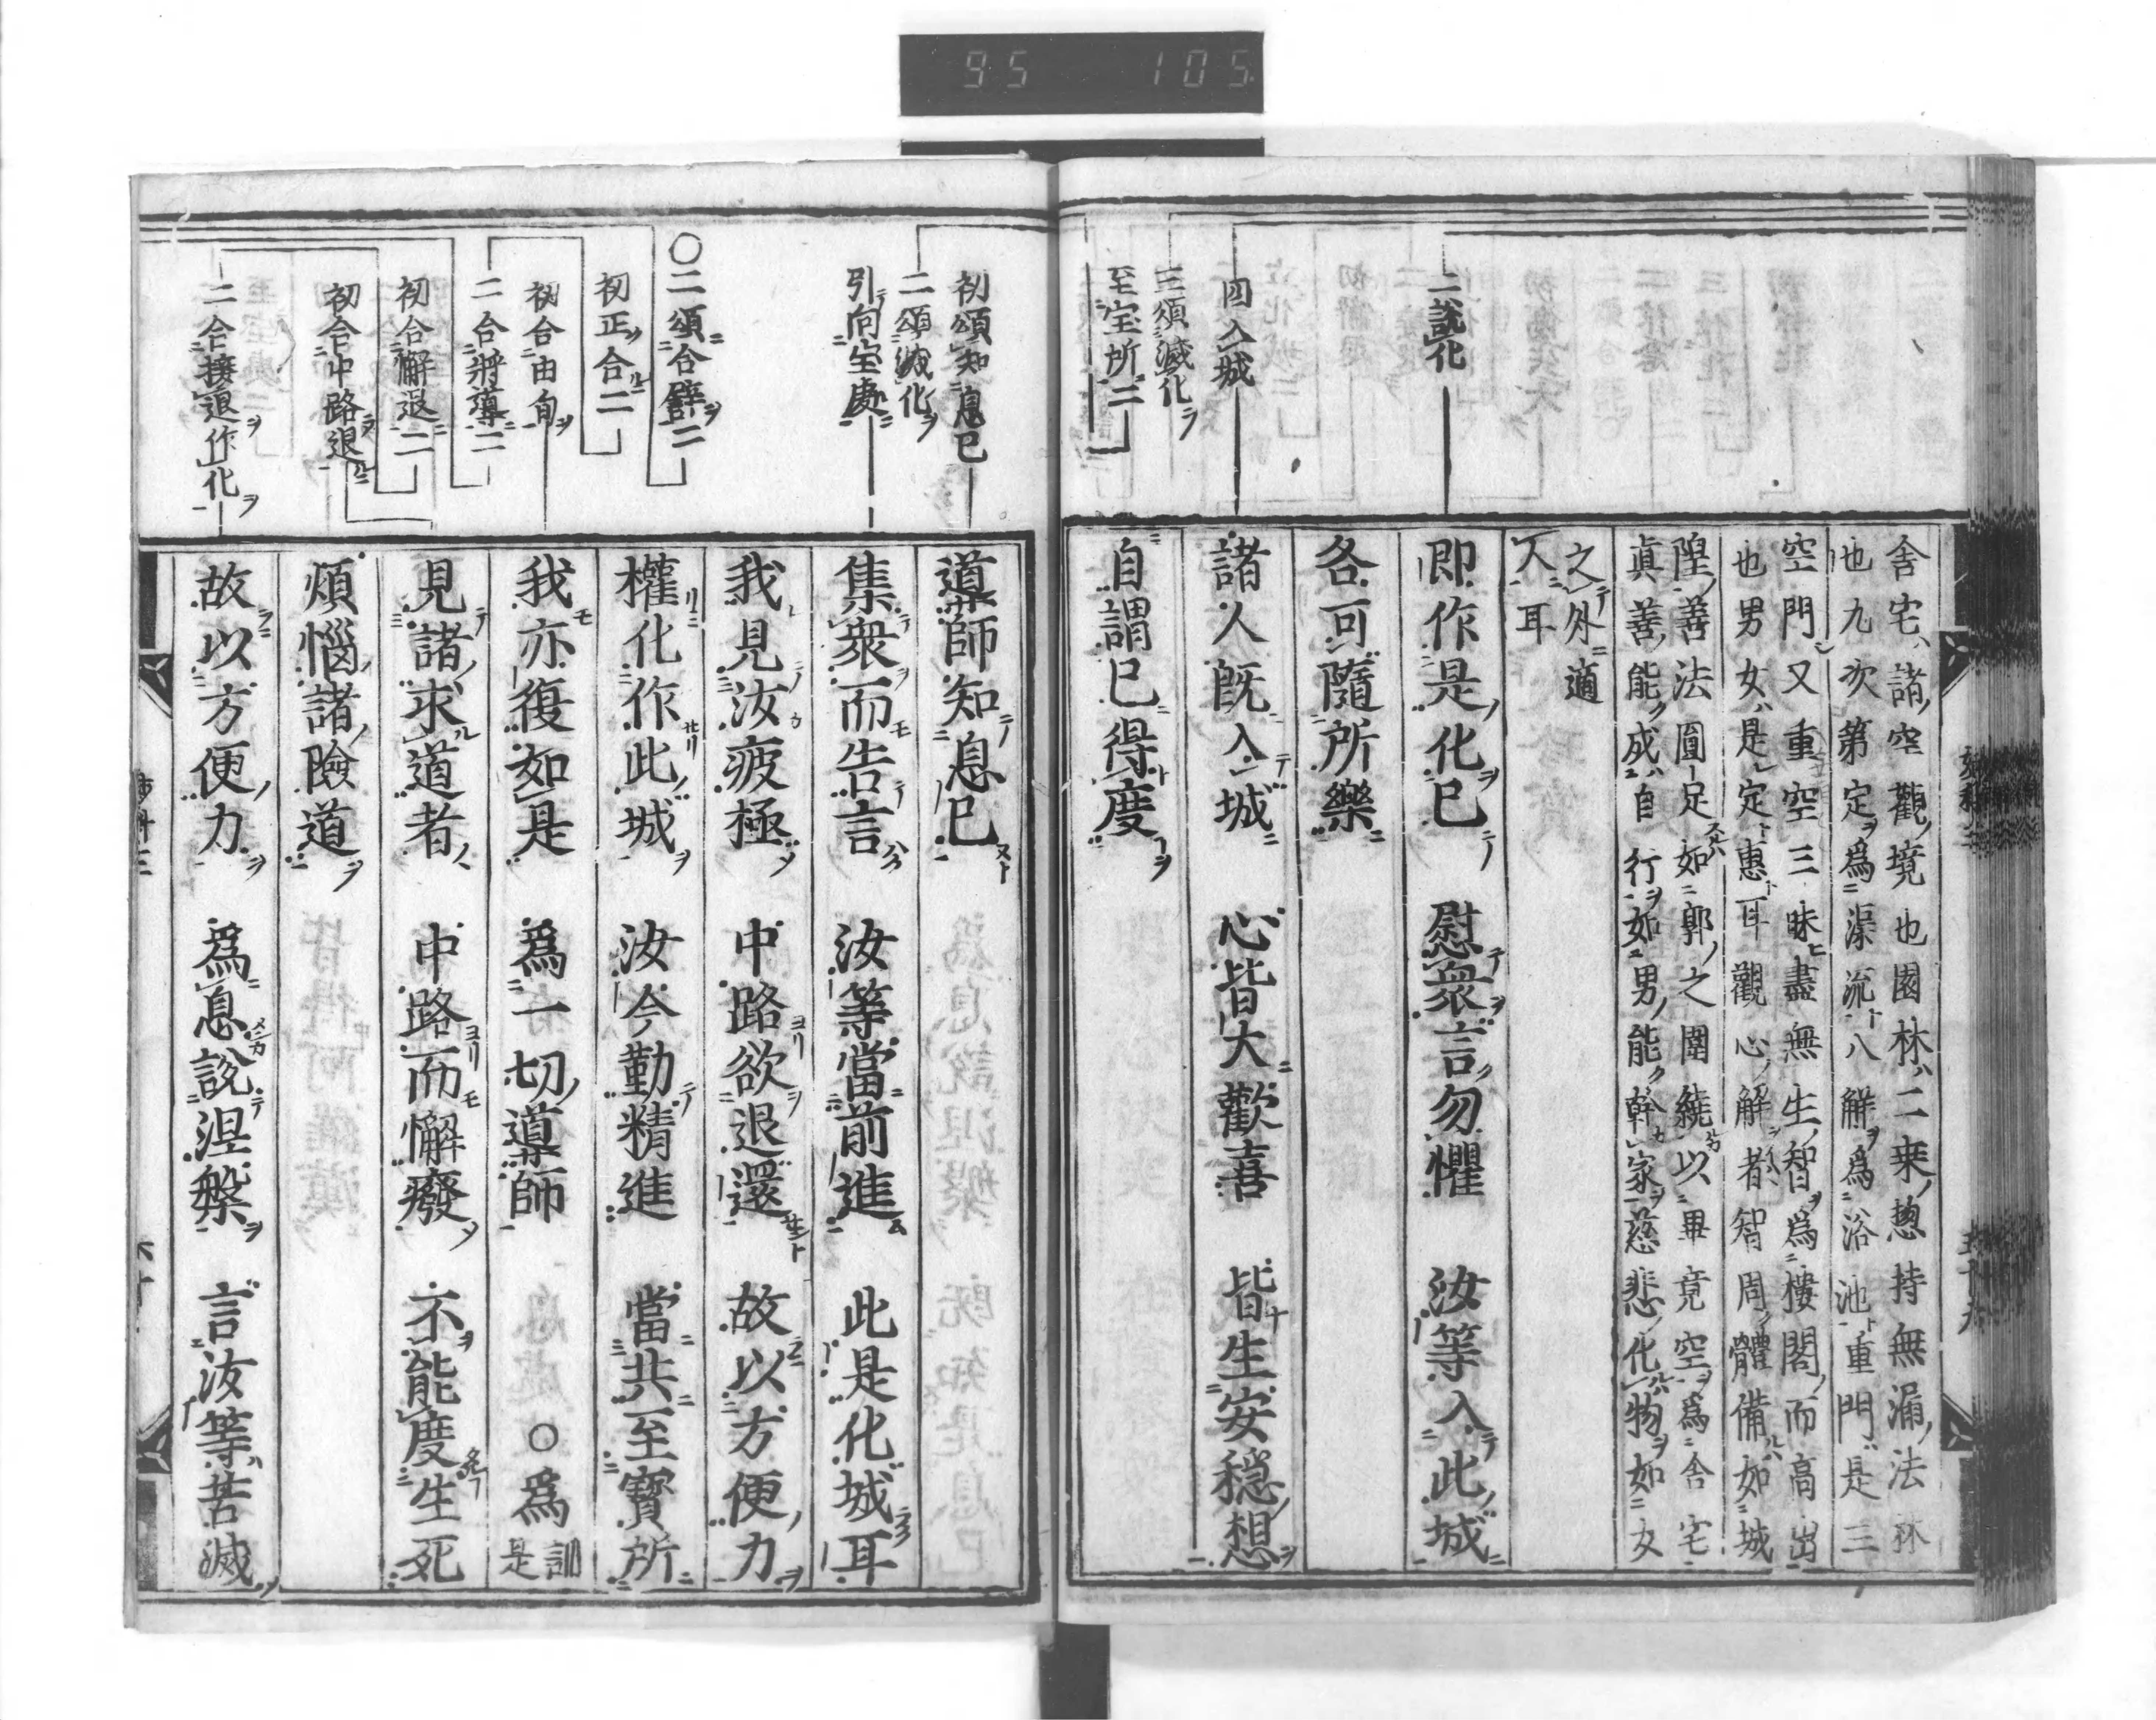 95 105
二説化
四入城
三頌滅化
至宝所二
舎宅諸空觀境也園林二乗惣持無漏法林
也九次第定爲渠流八解爲浴池重門是三
空門又重空三昧盡無生智爲樓閣而高出
也男女是定惠耳觀心解者智周體備如城
隍善法圓足如郭之圍繞以畢竟空爲舎宅
眞善能成自行如男能幹家慈悲化物如女
之外適
人耳
即作是化已 慰衆言勿懼 汝等入此城
各可隨所樂
諸人既入城 心皆大歡喜 皆生安穏想
自謂已得度
初頌知息已
二頌滅化
引向宝處
〇二頌合譬二
初正合二
初合由旬
二合將導二
初合懈退二
初合中路退
二合接退作化
導師知息已
集衆而告言 汝等當前進 此是化城耳
我見汝疲極 中路欲退還 故以方便力
權化作此城 汝今勤精進 當共至寶所
我亦復如是 爲一切導師 〇爲訓是
見諸求道者 中路而懈廢 不能度生死
煩惱諸險道
故以方便力 爲息説涅槃 言汝等苦滅